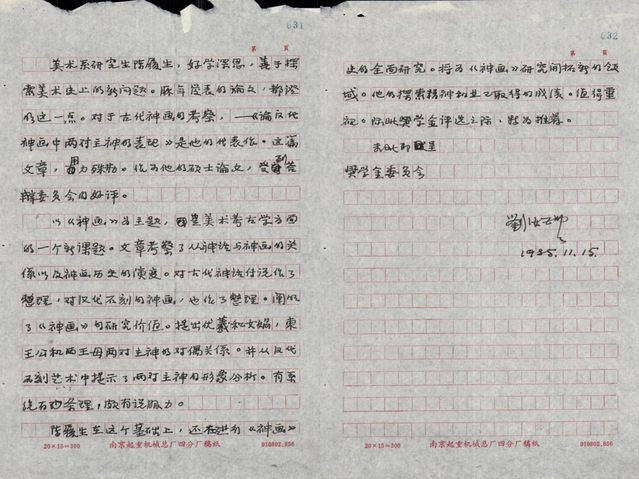 631
第 页
美术系研究生陈履生，好学深思，善于探
索美术史上的新问题。历年发表的论文，都证
明这一点。对于古代神画的考察，——《论汉代
神画中两对主神的表现》是他的代表作。这篇
文章，用力殊勤。作为他的硕士论文，受到答
辩委员会的好评。
以《神画》为主题，是美术考古学方面
的一个新课题。文章考察了从神话与神画的关
系以及神画历史的演变。对古代神话传说作了
整理，对汉代石刻的神画，也作了整理。阐明
了《神画》的研究价值。提出伏羲和女娲，东
王公和西王母两对主神的对偶关系。并从汉代
石刻艺术中提示了两对主神的形象分析。有系
统有条理，颇有说服力。
陈履生在这个基础上，还在进行《神画》
20×15=300 南京起重机械总厂四分厂稿纸 910802.856
632
第 页
史的全面研究。将为《神画》研究开拓新的领
域。他的探索精神和业已取得的成绩。值得重
视。际此奖学金评选之际，特为推荐。
此呈
奖学金委员会
劉汝醴
1985.11.15.
20×15=300 南京起重机械总厂四分厂稿纸 910802.856